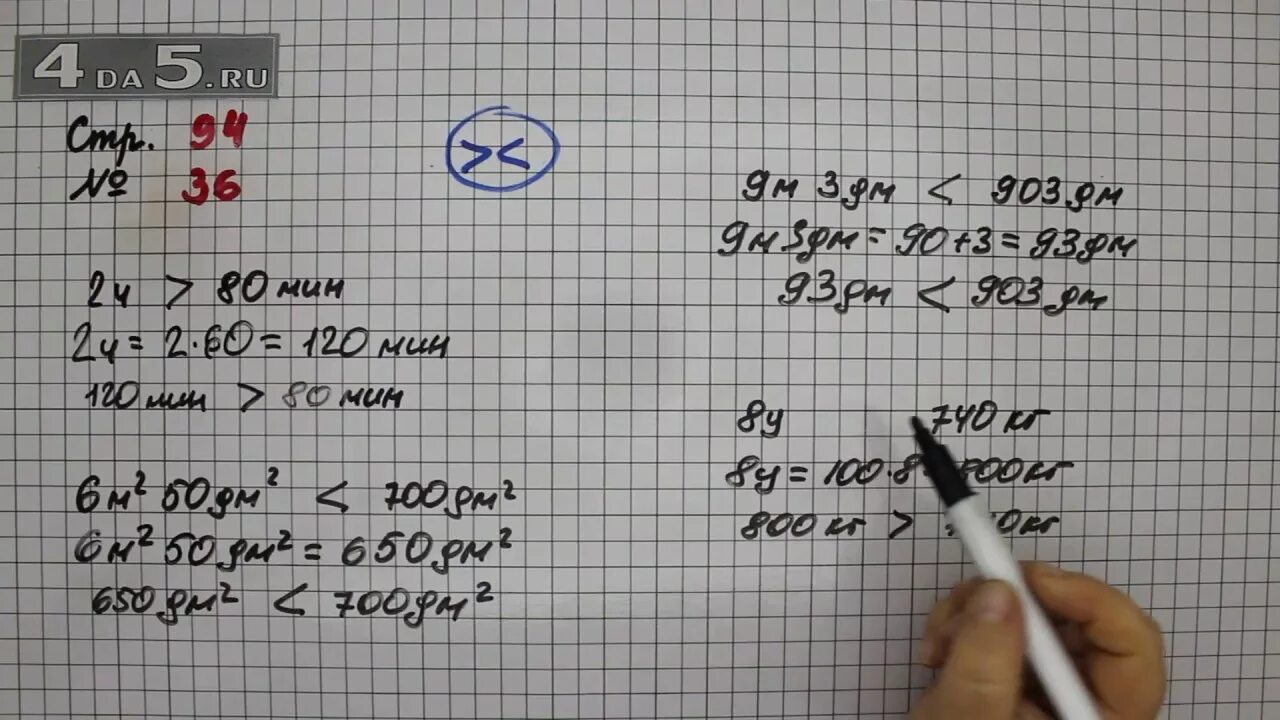 4 DA 5.RU
Стр. 94
№ 36
><
2ч > 80 мин
2ч = 2·60 = 120 мин
120 мин > 80 мин
6м² 50дм² < 700дм²
6м² 50дм² = 650дм²
650дм² < 700дм²
9м 3дм < 903дм
9м 3дм = 90+3 = 93дм
93дм < 903дм
8ц 740 кг
8ц = 100·8
800 кг >